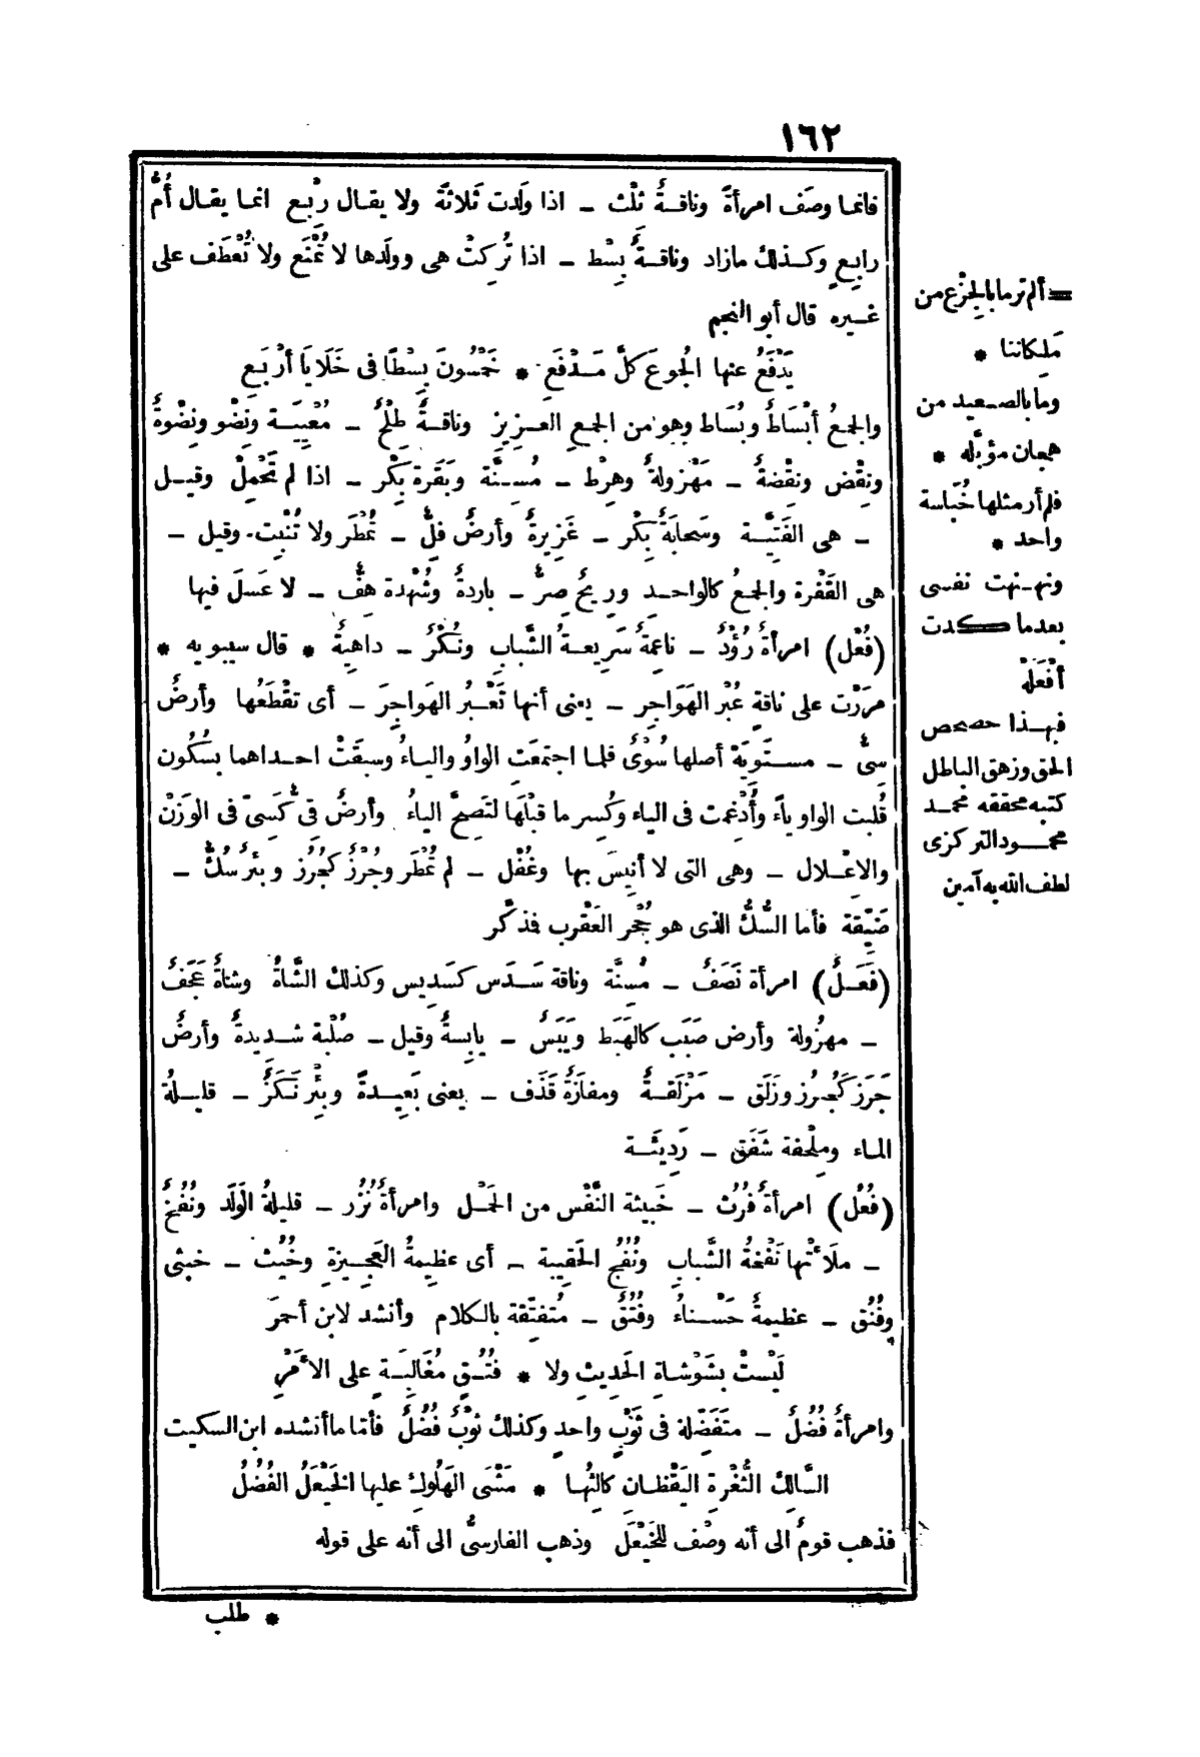 ١٦٢
فانما وصَف امرأةً وناقـةٌ ثِلْث ــ اذا وَلَدت ثَلاثةً ولا يقـال رِبْع انما يقـال أُمُّ
رابِعٍ وكـذلك مازاد وناقـةٌ بِسْط ــ اذا تُرِكتْ هى وولَدها لا تُمْنَع ولا تُعْطَف على
غـيره قال أبو النجم
يَدْفَعُ عنها الجُوعَ كلَّ مَـدْفَعِ * خَمْسُونَ بِسْطًا فى خَلَايَا أرْبَعِ
والجمعُ أبْسَاطٌ وبُسَاط وهو من الجمع العـزيز وناقـةٌ طِلْحٌ ــ مُعْيِيَـة ونِضْو ونِضْوةٌ
ونِقْض ونِقْضةٌ ــ مَهْزولةٌ وهِرْط ــ مُسِنَّة وبَقَرة بِكْر ــ اذا لم تَحْمِلْ وقيـل
ــ هى الفَتِيَّـة وسَحابَةٌ بِكْر ــ غَزِيرةٌ وأرضٌ فِلٌّ ــ تُمْطَر ولا تُنْبِت وقيل ــ
هى القَفْرة والجمعُ كالواحـدِ ورِيحٌ صِرٌّ ــ باردةٌ وشُهْدة هِفٌّ ــ لا عَسَلَ فيها
(فُعْل) امرأةٌ رُؤْدٌ ــ ناعِمةٌ سَرِيعـةُ الشَّبابِ ونُكْرٌ ــ داهِيَةٌ * قال سيبويه *
مررْت على ناقةٍ عُبْرِ الهَوَاجِرِ ــ يعنى أنها تَعْبُر الهَواجِرَ ــ أى تقْطَعُها وأرضٌ
سِىٌّ ــ مسـتَوِيَة أصلها سُوْىٌ فلما اجتمَعَت الواوُ والياءُ وسبقَتْ احـداهما بسُكُون
قُلِبت الواو ياً وأُدْغِمت فى الياء وكُسِر ما قَبْلَها لتَصِحَّ الياءُ وأرضٌ قِىٌّ كَسِىّ فى الوَزْن
والاعْـلال ــ وهى التى لا أنِيسَ بها وغُفْل ــ لم تُمْطَر وجُرْزٌ كجُرُز وبِئْر سُكٌّ ــ
ضَيِّقة فأما السُّكُّ الذى هو جُحْر العَقْرب فذكَّر
(فَعَـلٌ) امرأة نَصَفٌ ــ مُسِنَّة وناقة سَـدَس كسَدِيس وكذلك الشَّاةُ وشاةٌ عَجَفٌ
ــ مهزُولة وأرض صَبَب كالهَبَط ويَبَسٌ ــ يابِسةٌ وقيل ــ صُلْبة شـديدةٌ وأرضٌ
جَرَز كَجُرُز وزَلَق ــ مَزْلَقـةٌ ومفازَةٌ قَذَف ــ يعنى بَعِيـدةً وبِئْر نَكَزٌ ــ قليـلةُ
المـاء ومِلْحفة شَفَق ــ رَدِيئـة
(فُعُل) امرأةٌ فُرُث ــ خَبيثة النَّفْس من الحَمْل وامرأةٌ نُزُر ــ قليلةُ الوَلَد ونُفُخٌ
ــ ملَأَتْها نَفْخةُ الشَّبابِ ونُفُج الحَقِيبة ــ أى عظِيمةُ العَجِـيزةِ وخُنُث ــ خُنثى
وفُنُق ــ عظيمةٌ حَسْـناءُ وفُتُقٌ ــ مُتفتِّقة بالكلام وأنشد لابن أحمرَ
لَيْستْ بشَوْشاةِ الحَدِيثِ ولا * فُتُـقٍ مُغَالِبَـةٍ على الأَمْرِ
وامرأةٌ فُضُلٌ ــ متَفَضِّلة فى ثَوْبٍ واحدٍ وكذلك ثوْبٌ فُضُلٌ فأمّا ما أنشده ابن السكيت
السَّالِكُ الثُّغْرةِ اليَقْظـانِ كالِئُها * مَشْىَ الهَلُوكِ عليها الخَيْعَلُ الفُضُلُ
فذهب قومٌ الى أنه وصْف للخَيْعَل وذهب الفارسىُّ الى أنه على قوله
* طلب
= ألم تر ما بالجِزْع من
مَلِكاننا *
وما بالصـعيد من
هجان مؤبَّله *
فلم أر مثلها خُبَاسة
واحد *
ونهـنهت نفسى
بعدما كـدت
أفْعَلَهْ
فهـذا حصحص
الحق وزهق الباطل
كتبه محققه محمـد
محمـود التركزى
لطف الله به آمين